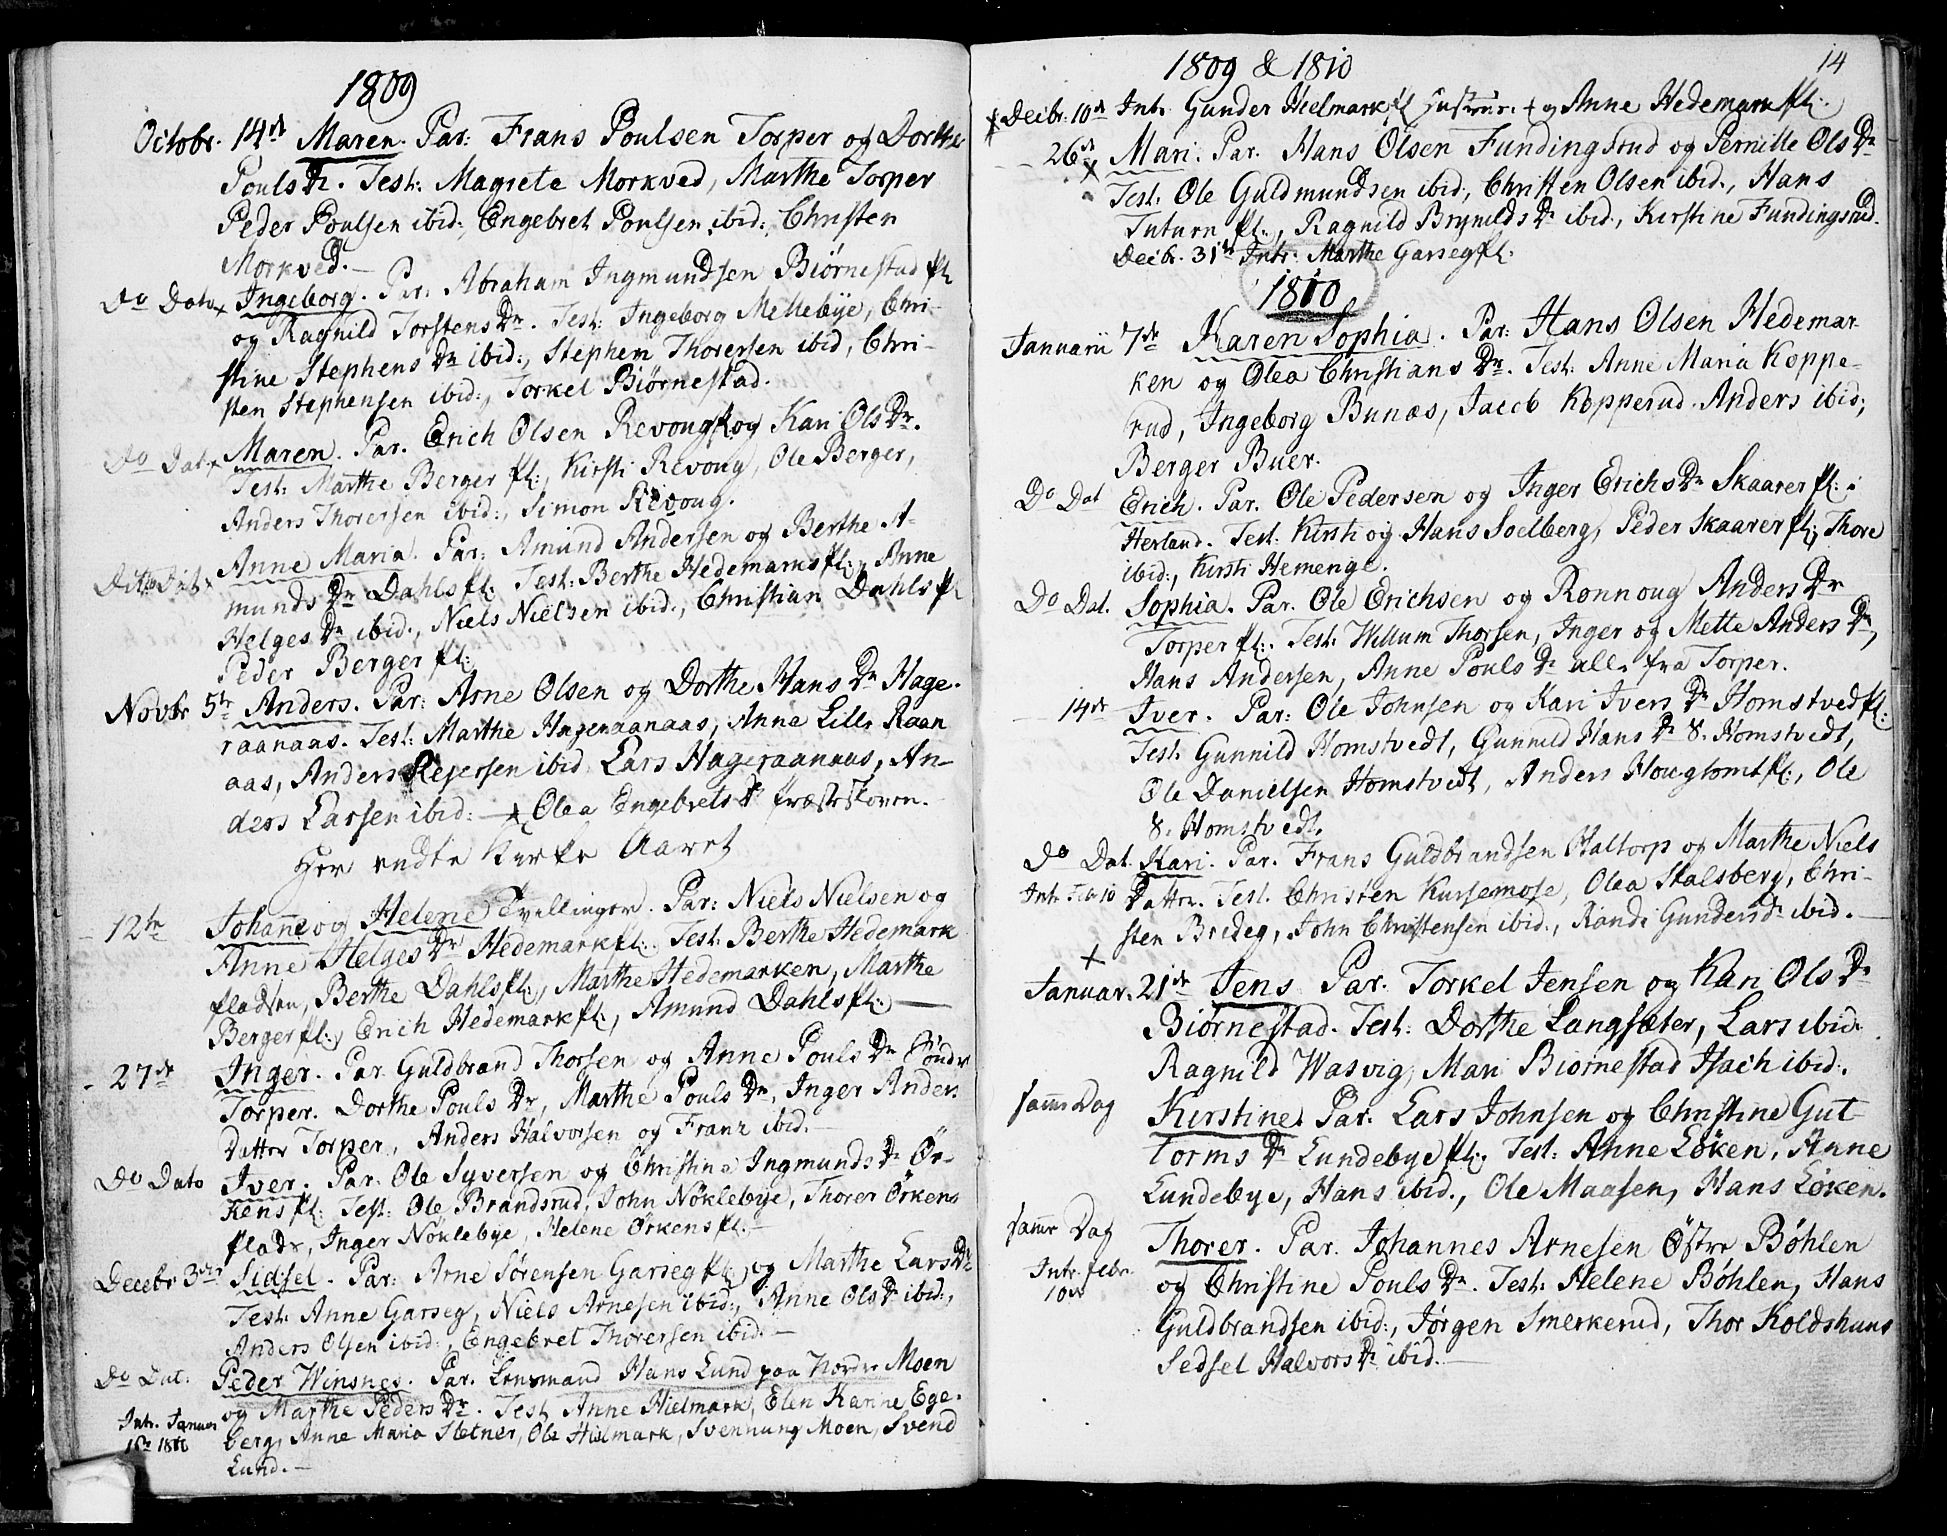 1809
Octobr. 14de Maren. Par: Frans Poulsen Torper og Dorthe
Pouls Dr. Test: Magrete Morkved, Marthe Torper
Peder Poulsen ibid:, Engebret Poulsen ibid:, Christen
Morkved.
Do Dato x Ingeborg. Par: Abraham Ingmundsen Biørnestad pl.
og Ragnild Torstens Dr. Test: Ingeborg Mellebye, Chri-
stine Stephens Dr ibid:, Stephen Thorersen ibid, Chri-
sten Stephensen ibid:, Torkel Biørnestad.
Do Dat x Maren. Par. Erich Olsen Revoug pl og Kari Ols Dr.
Test: Marthe Berger pl:, Kirsti Revoug, Ole Berger,
Anders Thorersen ibid:, Simon Revoug.
Ditto Dat: Anne Maria. Par: Amund Andersen og Berthe A-
munds Dr Dahls pl: Test: Berthe Hedemarks pl:, Anne
Helges Dr ibid:, Niels Nielsen ibid:, Christian Dahls pl
Peder Berger pl:
Novbr 5te Anders. Par: Arne Olsen og Dorthe Hans Dr Hage-
raanaas. Test: Marthe Hageraanaas, Anne Lille Raan
aas, Anders Rejersen ibid Lars Hageraanaas, An-
ders Larsen ibid: — x Olea Engebrets Dr Præsteskoven.
Her endte Kirke Aaret
- 12te Johanne og Helene Tvillinger. Par: Niels Nielsen og
Anne Helges Dr Hedemark pl: Test: Berthe Hedemark
pladsen, Berthe Dahls pl:, Marthe Hedemarken, Marthe
Berger pl:, Erich Hedemark pl:, Amund Dahls pl: —
- 27de Inger. Par Guldbrand Thorsen og Anne Pouls Dr Søndr
Torper. Dorthe Pouls Dr, Marthe Pouls Dr, Inger Anders
Datter Torper, Anders Halvorsen og Franz ibid. —
Do Dato Iver. Par. Ole Syversen og Christine Ingmunds Dr Ør-
kens pl: Test: Ole Brandsrud, John Nøklebye, Thorer Ørkens
plads, Inger Nøklebye, Helene Ørkens pl:
Decebr 3die Sidsel. Par: Arne Sørensen Garseg pl: og Marthe Lars Dr
Test: Anne Garseg, Niels Arnesen ibid:, Anne Ols Dr ibid:,
Anders Olsen ibid:, Engebret Thorersen ibid: —
Do Dat: Peder Winsnes. Par. Lensmand Hans Lund paa Nordre Moen
og Marthe Peders Dr. Test Anne Hielmark, Elen Karine Ege-
Intr. Januar
berg, Anne Maria Sletner, Ole Hielmark, Svennung Moen, Svend
1ste 1810
Lund. —
1809 & 1810
14
x Decbr. 10de Intr. Gunder Hielmark pl Hustrue. + og Anne Hedemark pl:
- 26de x Mari. Par. Hans Olsen Fundingsrud og Pernille Ols Dr
Test: Ole Guldmundsen ibid:, Christen Olsen ibid., Hans
Tuturn pl:, Ragnild Brynilds Dr ibid, Kirstine Fundingsrud.
Decbr. 31te Intr: Marthe Garseg pl:
1810
Januarii 7de Karen Sophia. Par: Hans Olsen Hedemar-
ken og Olea Christians Dr. Test: Anne Maria Koppe-
rud, Ingeborg Bunæs, Jacob Kopperud. Anders ibid;
Berger Buer.
Do Dat Erich. Par. Ole Pedersen og Inger Erichs Dr Skaarer pl: i
Herland. Test: Kirsti og Hans Soelberg, Peder Skaarer pl:, Thore
ibid:, Kirsti Hemenge.
Do Dat. Sophia. Par. Ole Erichsen og Ronnoug Anders Dr
Torper pl:. Test: Willum Thorsen, Inger og Mette Anders Dr,
Hans Andersen, Anne Pouls Dr alle fra Torper.
- 14de Iver. Par: Ole Johnsen og Kari Ivers Dr Homstved pl:
Test: Gunnild Homstvedt, Gunnild Hans Dr S. Homstvedt,
Ole Danielsen Homstvedt, Anders Hougtomt pl:, Ole
S. Homstvedt.
Do Dat. Kari. Par. Frans Guldbrandsen Haltorp og Marthe Niels
Datter. Test. Christen Kursemose, Olea Stalsberg, Chri-
sten Bredeg, John Christensen ibid., Randi Gunders Dr ibid. —
x
Januar. 21de Jens Par. Torkel Jensen og Kari Ols Dr
Biørnestad. Test: Dorthe Langsæter, Lars ibid.
Ragnild Wasvig, Mari Biørnestad Isach ibid:.
samme Dag Kirstine. Par: Lars Johnsen og Christine Gut-
torms Dr Lundebye pl:. Test: Anne Løken, Anne
Lundebye, Hans ibid., Ole Maasen, Hans Løken.
samme Dag Thorer. Par. Johannes Arnesen Østre Bøhlen
Intr. Febr.
10de
og Christine Pouls Dr. Test: Helene Bøhlen, Hans
Guldbrandsen ibid:, Jørgen Smerkerud, Thor Koldshuus
Sedsel Halvors Dr ibid. —